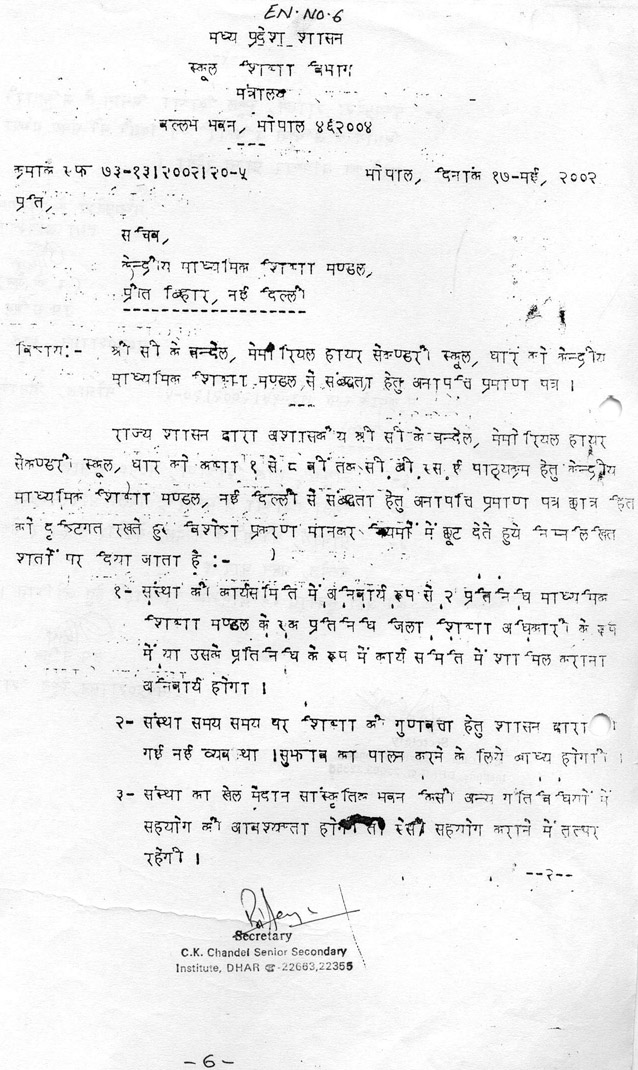 EN.NO.6
मध्य प्रदेश शासन
स्कूल शिक्षा विभाग
मंत्रालय
वल्लभ भवन, भोपाल ४६२००४
क्रमांक एफ ७३-१३।२००२।२०-५ भोपाल, दिनांक १७-मई, २००२
प्रति,
सचिव,
केन्द्रीय माध्यमिक शिक्षा मण्डल,
प्रीत विहार, नई दिल्ली
विषय:- श्री सी के चन्देल, मेमोरियल हायर सेकण्डरी स्कूल, धार को केन्द्रीय
माध्यमिक शिक्षा मण्डल से संबद्धता हेतु अनापत्ति प्रमाण पत्र ।
राज्य शासन द्वारा अशासकीय श्री सी के चन्देल, मेमोरियल हायर
सेकण्डरी स्कूल, धार को कक्षा १ से ८ वीं तक सी.बी.एस.ई पाठ्यक्रम हेतु केन्द्रीय
माध्यमिक शिक्षा मण्डल, नई दिल्ली से संबद्धता हेतु अनापत्ति प्रमाण पत्र छात्र हित
को दृष्टिगत रखते हुए विशेष प्रकरण मानकर नियमों में छूट देते हुये निम्नलिखित
शर्तों पर दिया जाता है :-
१- संस्था की कार्यसमिति में अनिवार्य रूप से २ प्रतिनिधि माध्यमिक
शिक्षा मण्डल के एक प्रतिनिधि जिला शिक्षा अधिकारी के रूप
में या उसके प्रतिनिधि के रूप में कार्य समिति में शामिल कराना
अनिवार्य होगा ।
२- संस्था समय समय पर शिक्षा की गुणवत्ता हेतु शासन द्वारा
गई नई व्यवस्था ।सुझाव का पालन करने के लिये बाध्य होगी ।
३- संस्था का खेल मैदान सांस्कृतिक भवन किसी अन्य गतिविधियों में
सहयोग की आवश्यकता होगी तो ऐसी सहयोग कराने में तत्पर
रहेगी ।
--२--
Secretary
C.K. Chandel Senior Secondary
Institute, DHAR ☎-22663,22355
-6-